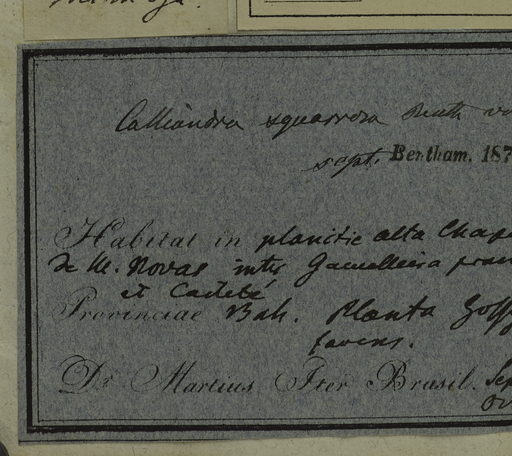 Calliandra squarrosa Benth
sept. Bentham. 187
Habitat in planitie alta Chap
de M. Novas inter
et Caeteté
Provinciae Bah. Planta
favens.
Dr. Martius Iter Brasil. Sep